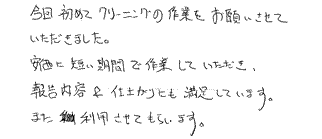 今回初めてクリーニングの作業をお願いさせて
いただきました。
短い期間で作業していただき、
報告内容と仕上がりとも満足しています。
また利用させてもらいます。